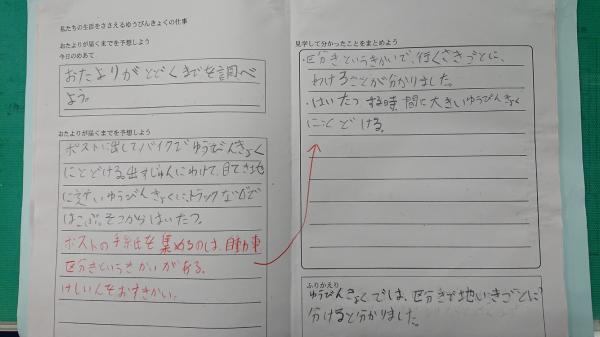 私たちの生活をささえるゆうびんきょくの仕事
おたよりが届くまでを予想しよう
今日のめあて
おたよりがとどくまでを調べ
よう。
おたよりが届くまでを予想しよう
ポストに出してバイクでゆうびんきょく
にとどける。出すじゅんにわけて、目てき地
に近いゆうびんきょくに、トラックなどで
はこぶ。そこからはいたつ。
ポストの手紙を集めるのは、自動車
区分きというきかいがある。
けしいんをおすきかい。
見学して分かったことをまとめよう
・区分きというきかいで、行くさきごとに、
わけることが分かりました。
・はいたつする時間に大きいゆうびんきょく
にとどける。
ふりかえり
ゆうびんきょくでは、区分きで地いきごとに
分けると分かりました。